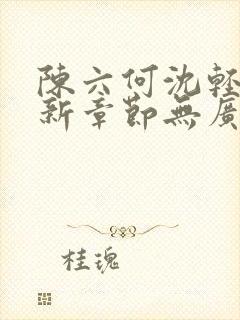 陳六何沈輕
新章節無廣
桂瑰